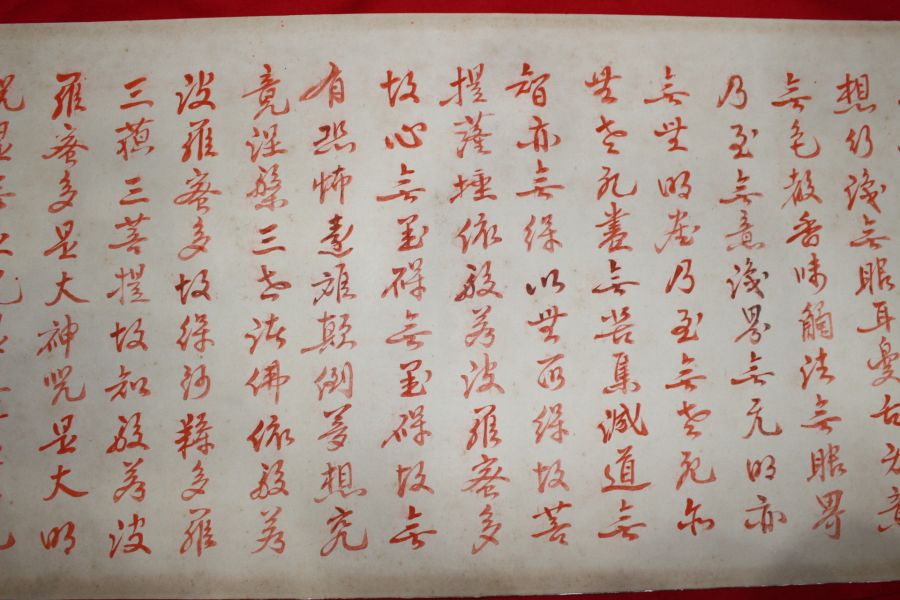 想行識無眼耳鼻舌身意
無色聲香味觸法無眼界
乃至無意識界無无明亦
無無明盡乃至無老死亦
無老死盡無苦集滅道無
智亦無得以無所得故菩
提薩埵依般若波羅蜜多
故心無罣礙無罣礙故無
有恐怖遠離顛倒夢想究
竟涅槃三世諸佛依般若
波羅蜜多故得阿耨多羅
三藐三菩提故知般若波
羅蜜多是大神咒是大明
咒是無上咒是